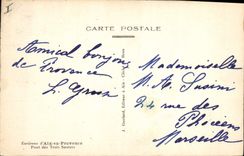 I
CARTE POSTALE
Amical bonjour
de Provence
L. Gros
Mademoiselle
M. A. Susini
24 rue des
Phocéens
Marseille
Environs d'Aix-en-Provence
Pont des Trois Sautets